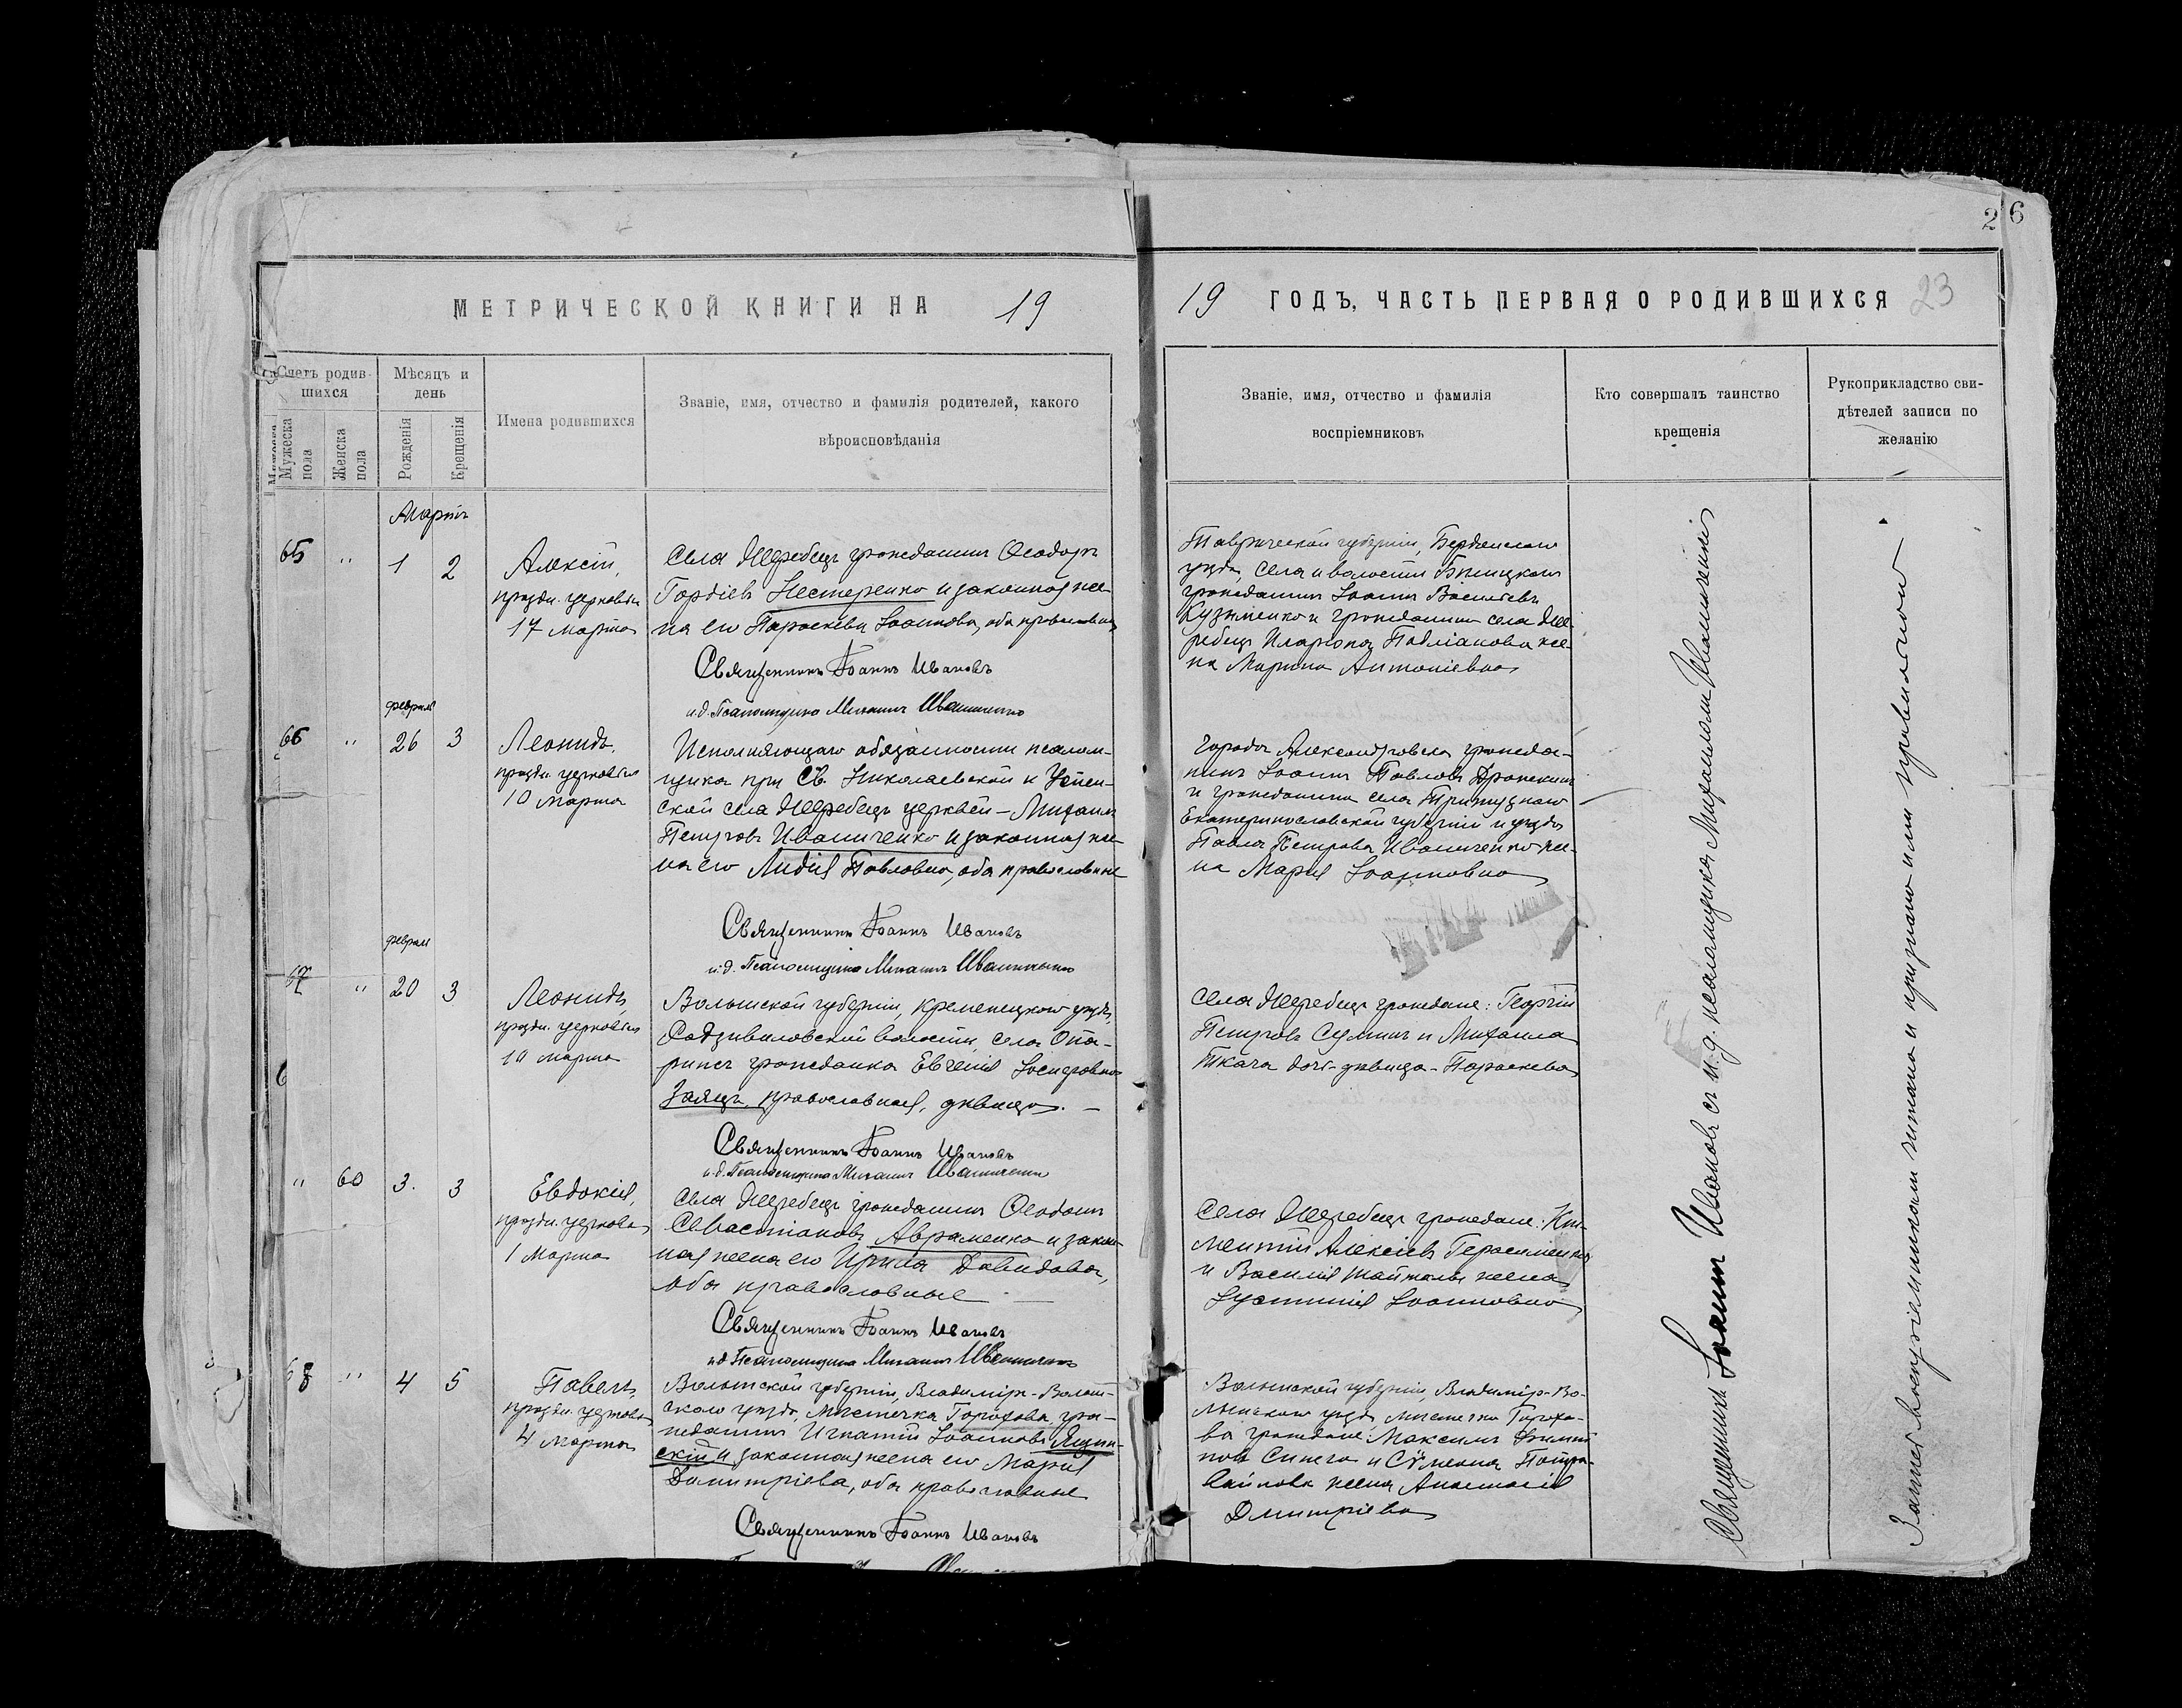 26
МЕТРИЧЕСКОЙ КНИГИ НА 19
19 ГОДЪ, ЧАСТЬ ПЕРВАЯ О РОДИВШИХСЯ 23
Счетъ родив-
шихся
Мужеска
пола
Женска
пола
Мѣсяцъ и
день
Рожденія
Крещенія
Имена родившихся
Званіе, имя, отчество и фамилія родителей, какого
вѣроисповѣданія
Званіе, имя, отчество и фамилія
воспріемниковъ
Кто совершалъ таинство
крещенія
Рукоприкладство сви-
дѣтелей записи по
желанію
Мартъ
65 " 1 2
Алексій,
праздн. церковью
17 марта
Села Жеребецъ гражданинъ Ѳеодоръ
Гордіевъ Нестеренко и законная же-
на его Параскева Іоаннова, оба православные
Священникъ Іоаннъ Ивановъ
и.д. Псаломщика Михаилъ Иваниченко
Таврической губерніи, Бердянскаго
уѣзда, села и волости
гражданинъ Іоаннъ Васильевъ
Кузьменко и гражданина села Же-
ребецъ Иларіона же-
на Марина Антоніевна
февраля
66 " 26 3
Леонидъ,
праздн. церковью
10 марта
Исполняющаго обязанности псалом-
щика при Св. Николаевской и Успен-
ской села Жеребецъ церквей - Михаилъ
Петровъ Иваниченко и законная же-
на его Лидія Павловна, оба православные
Священникъ Іоаннъ Ивановъ
и.д. Псаломщика Михаилъ Иваниченко
города Александровска гражда-
нинъ Іоаннъ Павловъ
и гражданина села
Екатеринославской губерніи и уѣзда
Павла Петрова Иваниченко же-
на Марія Іоанновна
февраля
67 " 20 3
Леонидъ,
праздн. церковью
10 марта
Волынской губерніи, Кременецкаго уѣзда,
Радзивиловской волости, села Опа-
рипсъ гражданка Евгенія Іосифовна
Заяцъ, православная, дѣвица. —
Священникъ Іоаннъ Ивановъ
и.д. Псаломщика Михаилъ Иваниченко
Села Жеребецъ граждане: Георгій
Петровъ и Михаила
Ткача дочь-дѣвица - Параскева
" 60 3. 3
Евдокія,
праздн. церковью
1 Марта
Села Жеребецъ гражданинъ
Севастіановъ Авраменко и закон-
ная жена его Ирина Давидова,
оба православные —
Священникъ Іоаннъ Ивановъ
и.д. Псаломщика Михаилъ Иваниченко
Села Жеребецъ граждане: Кли-
ментій Алексіевъ Герасименко
и Василія жена
Іустинія Іоанновна
68 " 4 5
Павелъ,
праздн. церковью
4 марта
Волынской губерніи, Владиміръ-Волын-
скаго уѣзда, мѣстечка Горохова, гра-
жданинъ Игнатій Іоанновъ Ящин-
скій и законная жена его Марія
Димитріева, оба православные
Священникъ Іоаннъ Ивановъ
Волынской губерніи, Владиміръ-Во-
лынскаго уѣзда, мѣстечка Горохо-
ва граждане: Максимъ
и Сѵмеона
жена Анастасія
Дмитріева
Священникъ Іоаннъ Ивановъ съ и.д. псаломщика Михаиломъ Иваниченко
Запись воспріемникамъ читана и признана ими правильною